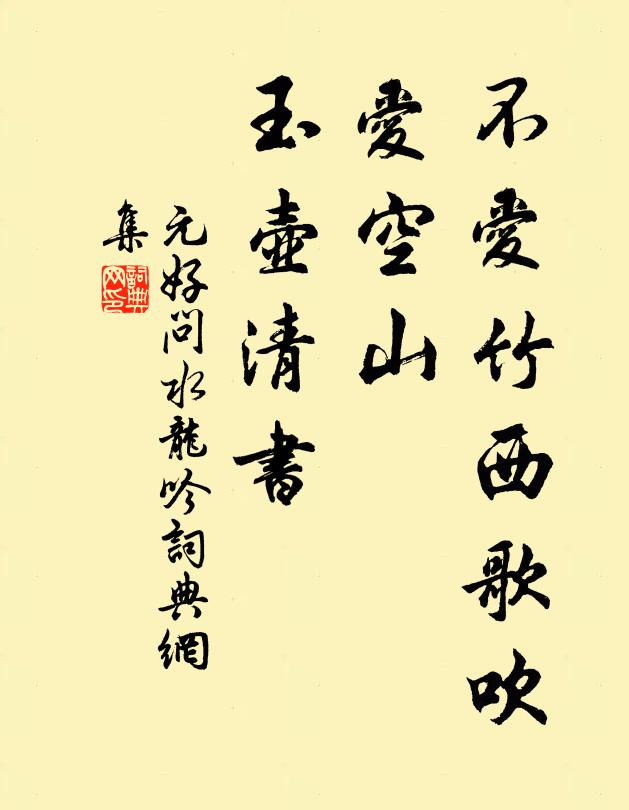 不愛竹西歌吹
愛空山
玉壺清書
元好問水龍吟詞典網
集
詞典網印